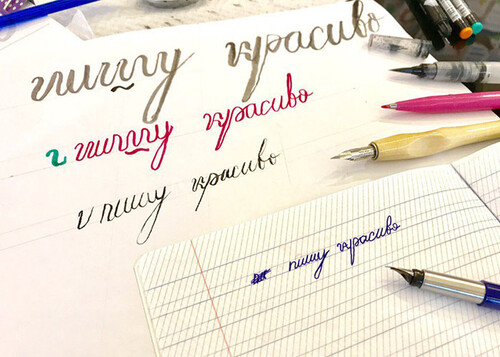 пишу красиво
пишу красиво
пишу красиво
пишу красиво